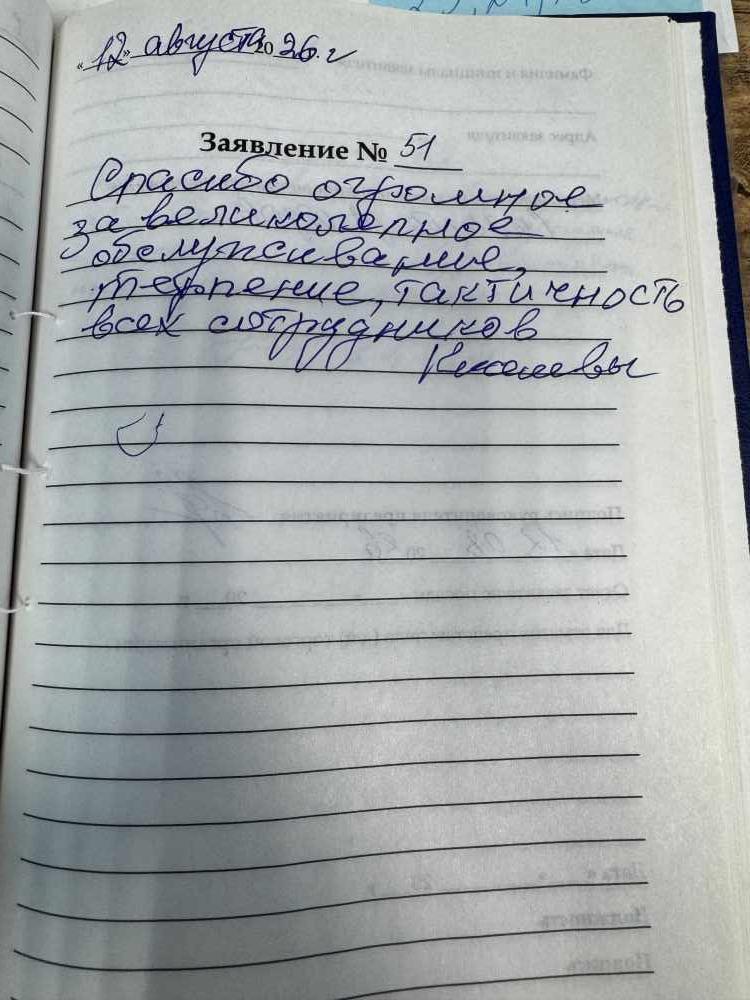 «12» августа 2026 г
Заявление № 51
Спасибо огромное
за великолепное
обслуживание,
терпение, тактичность
всех сотрудников